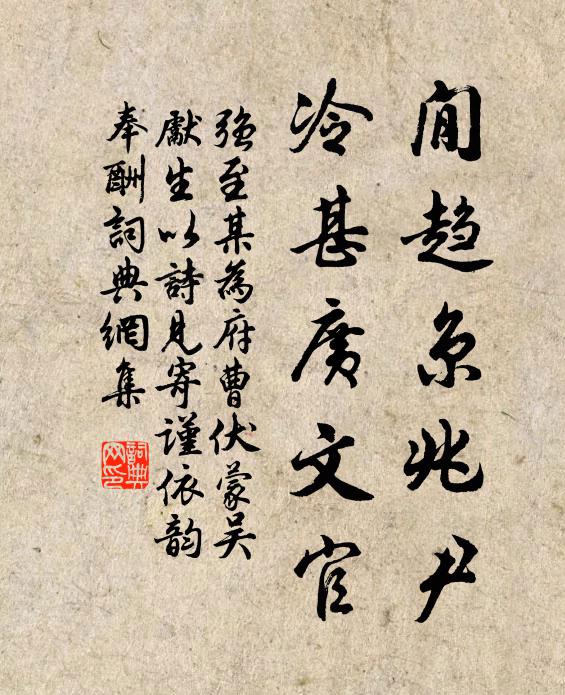 閒趨京兆尹
冷甚廣文官
強至某為府曹伏蒙吳
獻生以詩見寄謹依韵
奉酬詞典網集
詞典网印